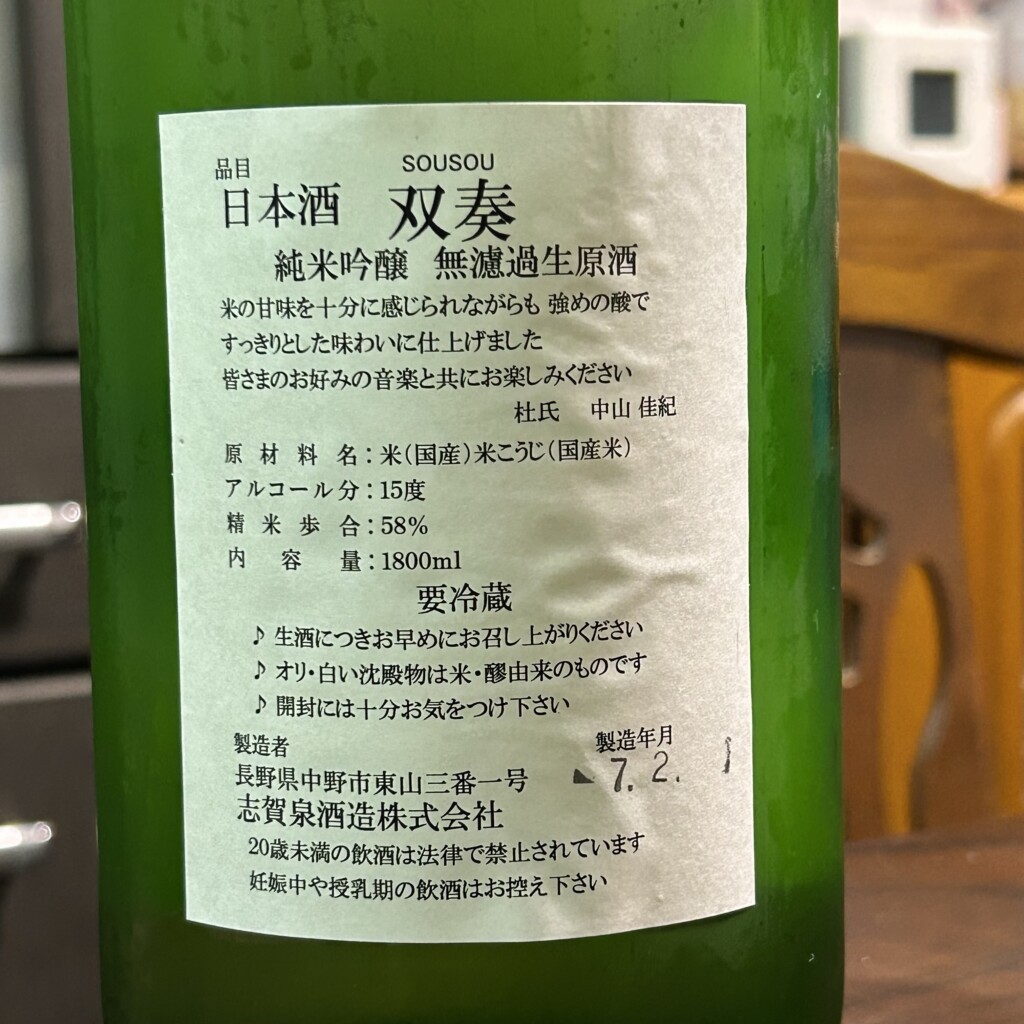 品目
SOUSOU
日本酒 双奏
純米吟醸 無濾過生原酒
米の甘味を十分に感じられながらも 強めの酸で
すっきりとした味わいに仕上げました
皆さまのお好みの音楽と共にお楽しみください
杜氏 中山 佳紀
原材料名：米（国産）米こうじ（国産米）
アルコール分：15度
精米歩合：58%
内容量：1800ml
要冷蔵
♪ 生酒につきお早めにお召し上がりください
♪ オリ・白い沈殿物は米・醪由来のものです
♪ 開封には十分お気をつけ下さい
製造者
長野県中野市東山三番一号
志賀泉酒造株式会社
製造年月
7. 2.
20歳未満の飲酒は法律で禁止されています
妊娠中や授乳期の飲酒はお控え下さい